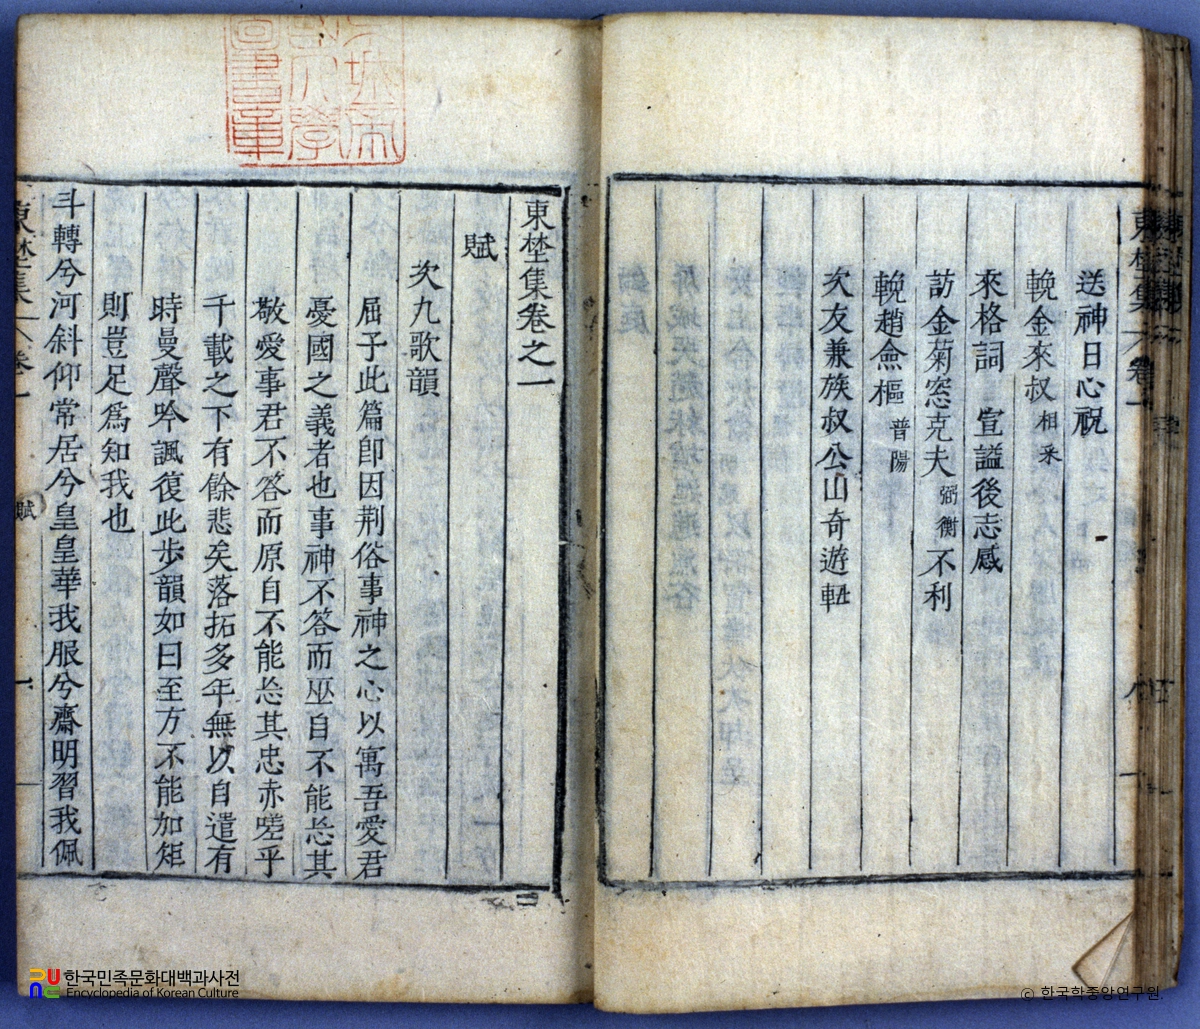 送神日心祝
輓金來叔相釆
來格詞 宣謚後志感
訪金菊窓克夫弼衡不利
輓趙僉樞普陽
次友兼族叔公山奇遊軸
東埜集卷之一
賦
次九歌韻
屈子此篇卽因荆俗事神之心以寓吾愛君
憂國之義者也事神不答而巫自不能忘其
敬愛事君不答而原自不能忘其忠赤嗟乎
千載之下有餘悲矣落拓多年無以自遣有
時曼聲吟諷復此步韻如曰至方不能加矩
則豈足爲知我也
斗轉兮河斜仰常居兮皇皇華我服兮齋明習我佩
東埜集 卷一
賦
한국민족문화대백과사전
Encyclopedia of Korean Culture
© 한국학중앙연구원